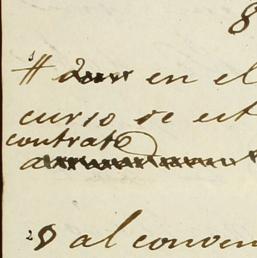 8
# en el
curso de est
contrato
al conven